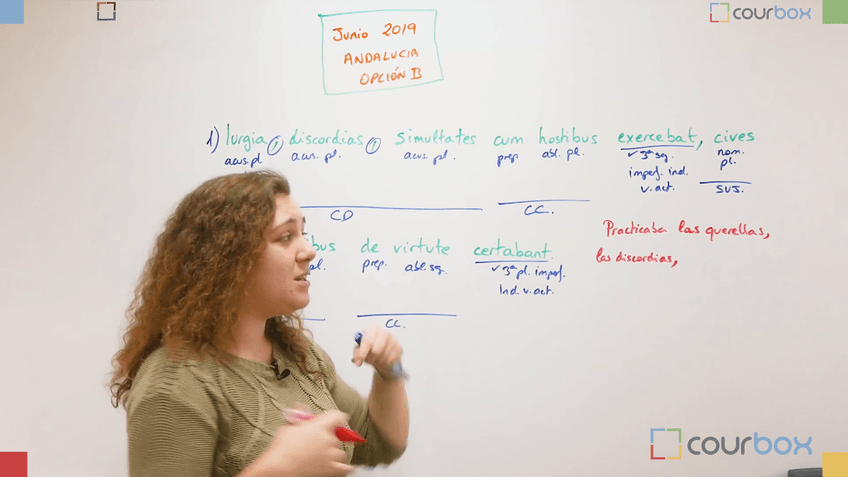 courbox
Junio 2019
ANDALUCIA
OPCIÓN B
1) Iurgia, discordias, simultates cum hostibus exercebat, cives
acus. pl. acus. pl. acus. pl. prep. abl. pl. v 3ª sg. nom.
imperf. ind. pl.
v. act. SUJ.
CD CC.
Practicaba las querellas,
las discordias,
ibus de virtute certabant.
pl. prep. abl. sg. v 3ª pl. imperf.
Ind. v. act.
CC.
courbox